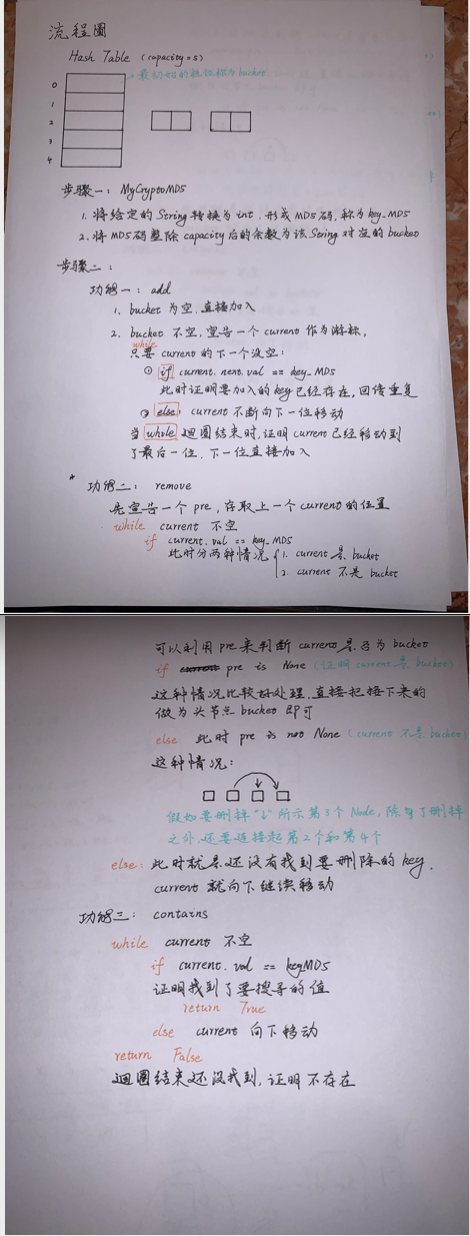 流程圖
Hash Table (capacity=5)
最初始的栈被称为bucket
0
1
2
3
4
步骤一: MyCryptoMD5
1. 将给定的String转换为int,形成MD5码,称为key_MD5
2. 将MD5码整除capacity后的余数为该String对应的bucket
步骤二:
功能一: add
1. bucket为空,直接加入
2. bucket不空,宣告一个current作为游标,
while
只要current的下一个没空:
① if current.next.val == key_MD5
此时证明要加入的key已经存在,回传重复
② else: current不断向下一位移动
当while迴圈结束时,证明current已经移动到
了最后一位,下一位直接加入
* 功能二: remove
先宣告一个pre,存取上一个current的位置
while current 不空
if current.val == key_MD5
此时分两种情况 1. current是bucket
2. current不是bucket
可以利用pre来判断current是否为bucket
if pre is None (证明current是bucket)
这种情况比较好处理,直接把接下来的
做为头节点bucket即可
else 此时pre is not None (current不是bucket)
这种情况:
假如要删掉"↓"所示第3个Node,除了删掉
之外,还要连接起第2个和第4个
else: 此时就是还没有找到要删除的key,
current就向下继续移动
功能三: contains
while current 不空
if current.val == keyMD5
证明找到了要搜寻的值
return True
else current向下移动
return False
迴圈结束还没找到,证明不存在